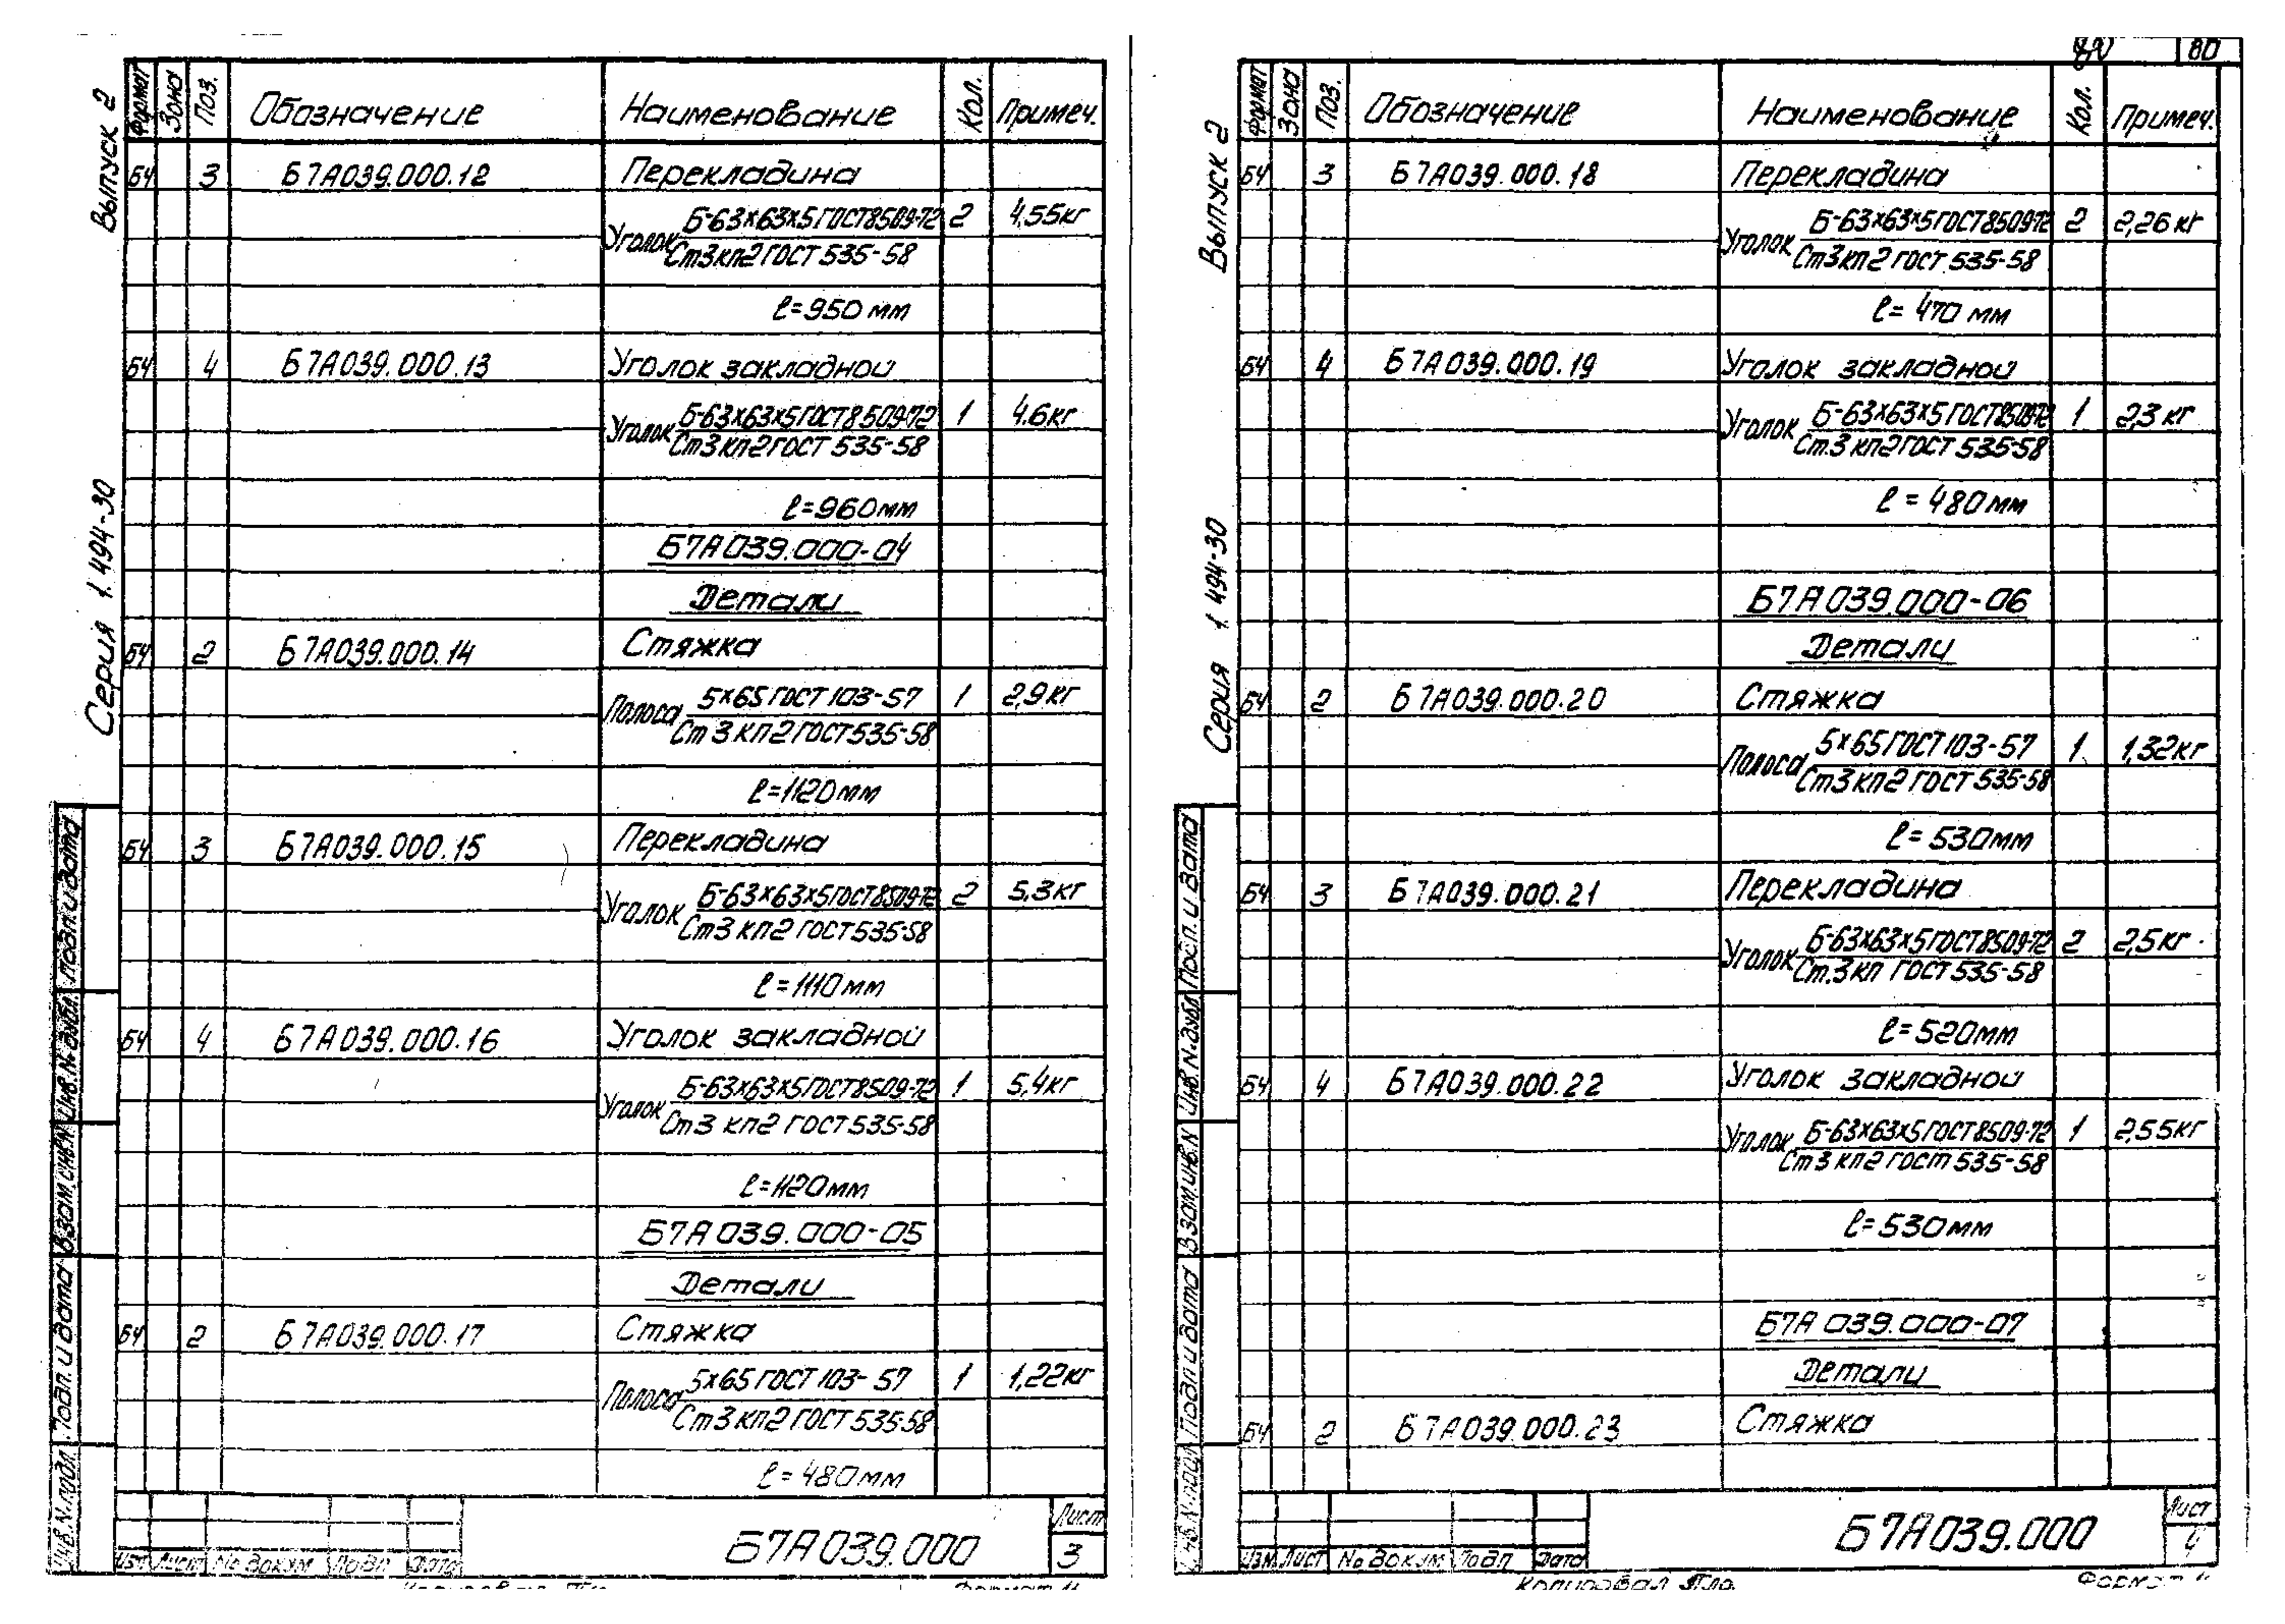 Выпуск 2
Серия 1.494-30
Формат Зона Поз. Обозначение Наименование Кол. Примеч.
БЧ 3 Б7А039.000.12 Перекладина
Уголок Б-63х63х5 ГОСТ 8509-72 2 4,55кг
Ст3кп2 ГОСТ 535-58
ℓ=950 мм
БЧ 4 Б7А039.000.13 Уголок закладной
Уголок Б-63х63х5 ГОСТ 8509-72 1 4.6кг
Ст3кп2 ГОСТ 535-58
ℓ=960мм
Б7А039.000-04
Детали
БЧ 2 Б7А039.000.14 Стяжка
Полоса 5х65 ГОСТ 103-57 1 2,9кг
Ст 3 кп2 ГОСТ 535-58
ℓ=1120мм
БЧ 3 Б7А039.000.15 Перекладина
Уголок Б-63х63х5 ГОСТ 8509-72 2 5,3кг
Ст3 кп2 ГОСТ 535-58
ℓ=1110мм
БЧ 4 Б7А039.000.16 Уголок закладной
Уголок Б-63х63х5 ГОСТ 8509-72 1 5,4кг
Ст3 кп2 ГОСТ 535-58
ℓ=1120мм
Б7А039.000-05
Детали
БЧ 2 Б7А039.000.17 Стяжка
Полоса 5х65 ГОСТ 103-57 1 1,22кг
Ст3кп2 ГОСТ 535-58
ℓ=480мм
Инв.N.подл. Подп. и дата Взам.инв.N Инв.N.дубл. Подп. и дата
Изм. Лист № докум Подп. Дата
Б7А039.000
Лист
3
80
Выпуск 2
Серия 1.494-30
Формат Зона Поз. Обозначение Наименование Кол. Примеч.
БЧ 3 Б7А039.000.18 Перекладина
Уголок Б-63х63х5 ГОСТ 8509-72 2 2,26кг
Ст3кп2 ГОСТ 535-58
ℓ=470 мм
БЧ 4 Б7А039.000.19 Уголок закладной
Уголок Б-63х63х5 ГОСТ 8509-72 1 2,3кг
Ст.3 кп2 ГОСТ 535-58
ℓ=480мм
Б7А039.000-06
Детали
БЧ 2 Б7А039.000.20 Стяжка
Полоса 5х65 ГОСТ 103-57 1. 1,32кг
Ст3кп2 ГОСТ 535-58
ℓ=530мм
БЧ 3 Б7А039.000.21 Перекладина
Уголок Б-63х63х5 ГОСТ 8509-72 2 2,5кг
Ст.3 кп ГОСТ 535-58
ℓ=520мм
БЧ 4 Б7А039.000.22 Уголок закладной
Уголок Б-63х63х5 ГОСТ 8509-72 1 2,55кг
Ст3 кп2 ГОСТ 535-58
ℓ=530мм
Б7А039.000-07
Детали
БЧ 2 Б7А039.000.23 Стяжка
Инв.N.подл Подп. и дата Взам.инв.N Инв.N.дубл Подп. и дата
Изм Лист № докум Подп Дата
Б7А039.000
Лист
4
Копировал
Формат